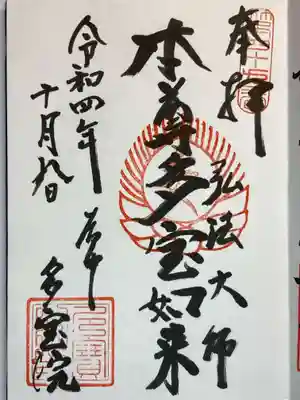 奉拝
弘法大師
本尊多宝如来
令和四年
十月九日
谷中
多宝院